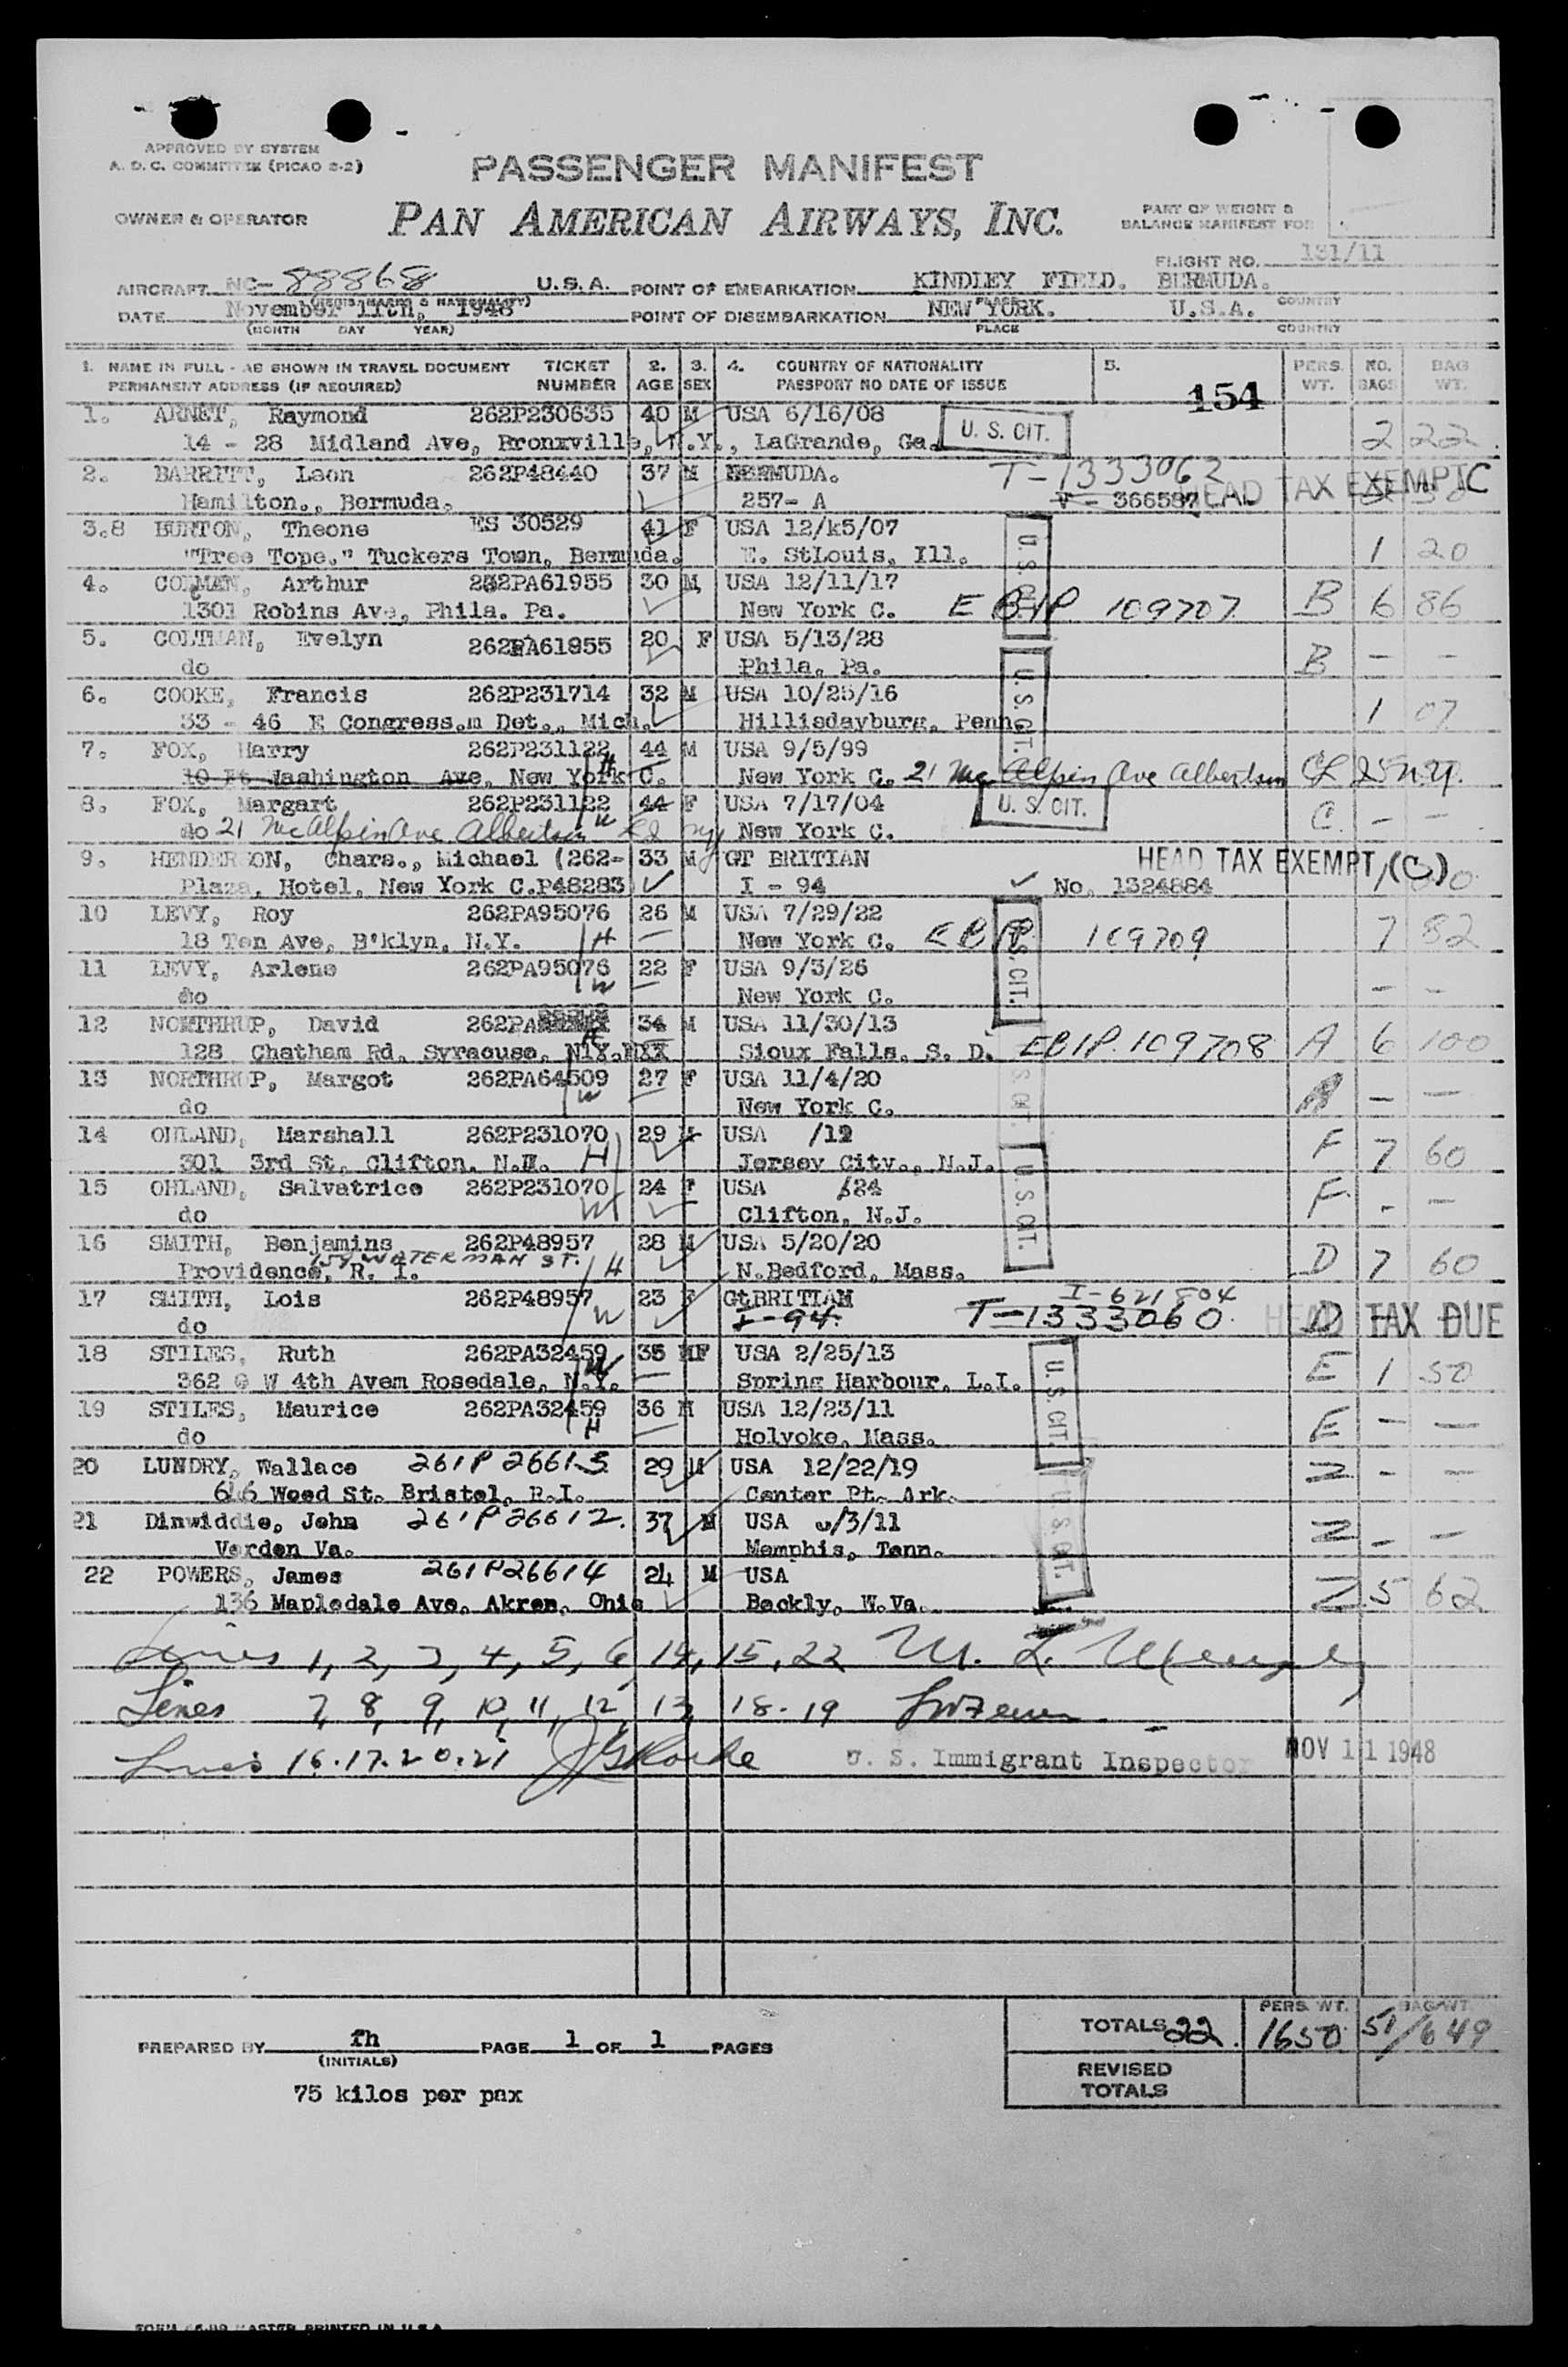 APPROVED BY SYSTEM
A. D. C. COMMITTEE (PICAO 2-2)
PASSENGER MANIFEST
OWNER & OPERATOR
PAN AMERICAN AIRWAYS, INC.
PART OF WEIGHT &
BALANCE MANIFEST FOR
FLIGHT NO. 131/11
AIRCRAFT NC-88868 U.S.A. POINT OF EMBARKATION KINDLEY FIELD. BERMUDA.
(REGIS. MARKS & NATIONALITY) PLACE COUNTRY
DATE November 11th, 1948 POINT OF DISEMBARKATION NEW YORK. U.S.A.
(MONTH DAY YEAR) PLACE COUNTRY
1. NAME IN FULL - AS SHOWN IN TRAVEL DOCUMENT TICKET 2. 3. 4. COUNTRY OF NATIONALITY 5. PERS. NO. BAG
PERMANENT ADDRESS (IF REQUIRED) NUMBER AGE SEX PASSPORT NO DATE OF ISSUE WT. BAGS WT.
154
1. ARNET, Raymond 262P230635 40 M USA 6/16/08
14 - 28 Midland Ave, Bronxville, N.Y., LaGrande, Ga. U. S. CIT. 2 22
2. BARRITT, Leon 262P48440 37 M BERMUDA. T-1333062
Hamilton., Bermuda. 257- A V - 366587 HEAD TAX EXEMPT C
3.8 BURTON, Theone ES 30529 41 F USA 12/k5/07 U. S. CIT.
"Tree Tope." Tuckers Town, Bermuda. E. StLouis, Ill. 1 20
4. COLMAN, Arthur 262PA61955 30 M USA 12/11/17
1301 Robins Ave, Phila. Pa. New York C. EBIP 109707 B 6 86
5. COLTMAN, Evelyn 262PA61955 20 F USA 5/13/28
do Phila, Pa. B - -
6. COOKE, Francis 262P231714 32 M USA 10/25/16 U.S. CIT.
33 - 46 E Congress.m Det., Mich. Hillisdayburg, Penn. 1 07
7. FOX, Harry 262P231122 44 M USA 9/5/99
10 Ft Washington Ave, New York C. H New York C. 21 McAlpin Ave Albertson
8. FOX, Margart 262P231122 44 F USA 7/17/04 U. S. CIT.
do 21 McAlpin Ave Albertson W New York C. C - -
9. HENDERSON, Chars., Michael (262- 33 M GT BRITIAN HEAD TAX EXEMPT (C)
Plaza, Hotel, New York C.P48283 I - 94 No. 1324884
10 LEVY, Roy 262PA95076 26 M USA 7/29/22
18 Ten Ave, B'klyn, N.Y. H New York C. EBIP 109709 7 82
11 LEVY, Arlene 262PA95076 22 F USA 9/3/26 U.S. CIT.
do W New York C. - -
12 NORTHRUP, David 262PA 34 M USA 11/30/13
128 Chatham Rd. Syracuse, Sioux Falls, S. D. EBIP. 109708 A 6 100
13 NORTHRUP, Margot 262PA64509 27 F USA 11/4/20
do W New York C. A - -
14 OHLAND, Marshall 262P231070 29 M USA /12
301 3rd St, Clifton. H Jersey City., N.J. F 7 60
15 OHLAND, Salvatrice 262P231070 24 F USA /24 U.S. CIT.
do W Clifton, N.J. F - -
16 SMITH, Benjamins 262P48957 28 M USA 5/20/20
159 WATERMAN ST.
Providence, R. I. H N.Bedford, Mass. D 7 60
17 SMITH, Lois 262P48957 23 F GtBRITIAN I-621804
do W I-94. T-1333060 HEAD TAX DUE D
18 STILES, Ruth 262PA32459 35 MF USA 2/25/13
362 @ W 4th Avem Rosedale, N.Y. W Spring Harbour, L.I. E 1 50
19 STILES, Maurice 262PA32459 36 M USA 12/23/11 U.S. CIT.
do H Holyoke, Mass. E - -
20 LUNDRY, Wallace 261P26613 29 M USA 12/22/19
646 Wood St. Bristol, R.I. Center Pt. Ark. N - -
21 Dinwiddie, John 261P26612 37 M USA /3/11 U.S. CIT.
Verden Va. Memphis, Tenn. N - -
22 POWERS, James 261P26614 24 M USA
136 Mapledale Ave, Akron, Ohio Beckly, W.Va. N 5 62
Lines 1, 2, 3, 4, 5, 6, 14, 15, 22
Lines 7, 8, 9, 10, 11, 12, 13, 18-19
Lines 16.17.20.21 U. S. Immigrant Inspector NOV 11 1948
TOTALS 22 PERS. WT. 1650 BAG WT. 51/649
PREPARED BY fh PAGE 1 OF 1 PAGES
(INITIALS)
REVISED
TOTALS
75 kilos per pax